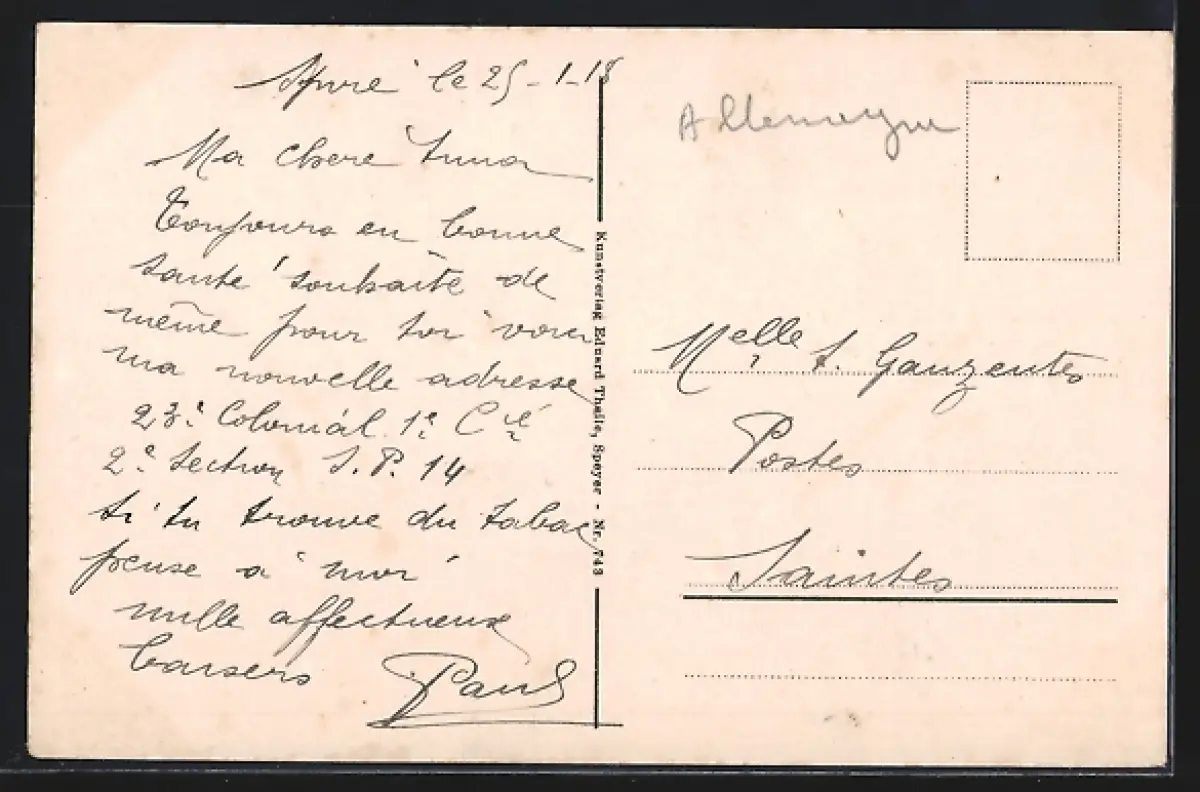 le 25-1-18
Ma chere
Toujours en bonne
santé souhaite de
même pour toi voici
ma nouvelle adresse
23e Colonial 1e Cie
2e Section S.P. 14
si tu trouve du tabac
pense a moi
mille affectueux
baisers Paul
Kunstverlag Eduard Theile, Speyer - Nr. 743
Allemagne
Melle S. Ganzentes
Postes
Saintes